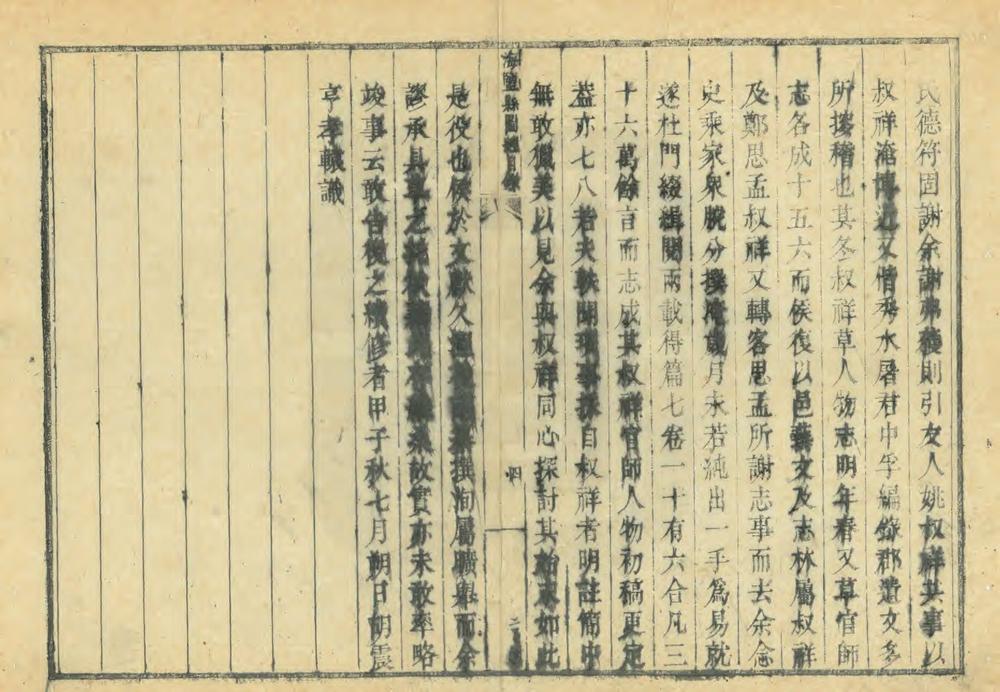 民德符固謝余謝弗獲則引友人姚叔祥共事以
叔祥淹博近又借秀水屠君中孚編錄郡遺文多
所援稽也其冬叔祥草人物志明年春又草官師
志各成十五六而侯復以邑藝文及志林屬叔祥
及鄭思孟叔祥又轉客思孟所謝志事而去余念
史乘家衆腕分撰淹歲月未若純出一手爲易就
遂杜門綴緝閱兩載得篇七卷一十有六合凡三
十六萬餘言而志成其叔祥官師人物初稿更定
葢亦七八若夫軼聞事採自叔祥者明註簡中
無敢獵美以見余與叔祥同心探討其始末如此
海鹽縣圖經目錄 四
是役也侯於文獻久撰洵屬曠舉而余
謬承具草之故實亦未敢率略
竣事云敢告後之續修者甲子秋七月朔日胡震
亨孝轅識